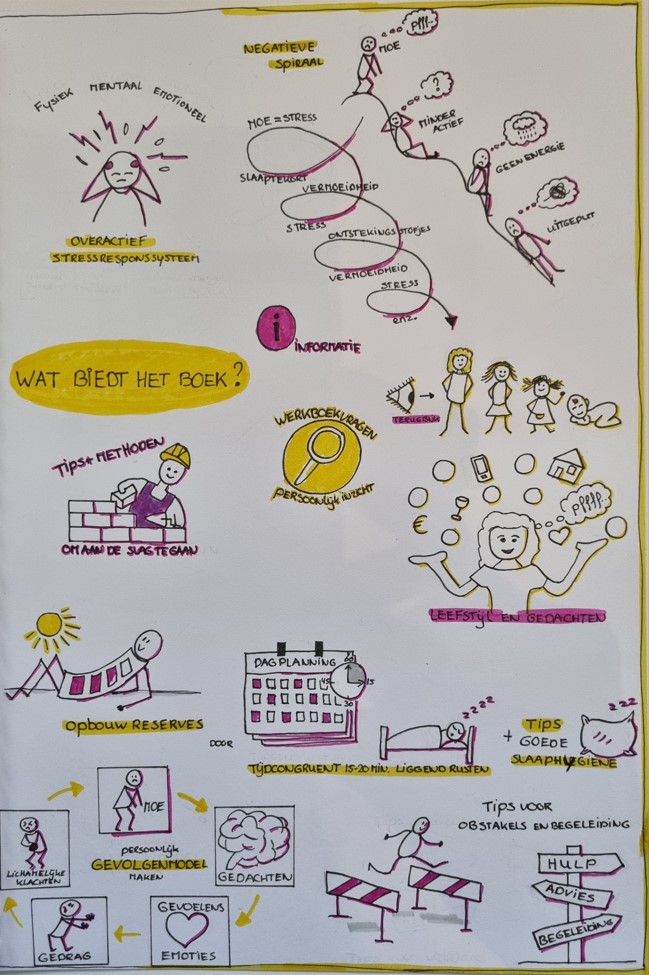 NEGATIEVE
SPIRAAL
pfff...
MOE
FYSIEK MENTAAL EMOTIONEEL
?
MINDER
ACTIEF
MOE = STRESS
GEEN ENERGIE
SLAAPTEKORT
VERMOEIDHEID
STRESS
UITGEPUT
ONTSTEKINGSSTOFJES
OVERACTIEF
STRESSRESPONSSYSTEEM
VERMOEIDHEID
STRESS
enz.
i
INFORMATIE
WAT BIEDT HET BOEK?
TERUGBLIK
WERKBOEKVRAGEN
PERSOONLIJK INZICHT
TIPS + METHODEN
OM AAN DE SLAG TE GAAN
pffff...
€
LEEFSTIJL EN GEDACHTEN
DAGPLANNING
60
45
15
30
OPBOUW RESERVES
DOOR
zzzz
TIJDCONGRUENT 15-20 MIN. LIGGEND RUSTEN
+ TIPS
GOEDE
SLAAPHYGIENE
zzz
MOE
PERSOONLIJK
GEVOLGENMODEL
MAKEN
LICHAMELIJKE
KLACHTEN
GEDACHTEN
GEDRAG
GEVOELENS
EMOTIES
TIPS VOOR
OBSTAKELS EN BEGELEIDING
HULP
ADVIES
BEGELEIDING